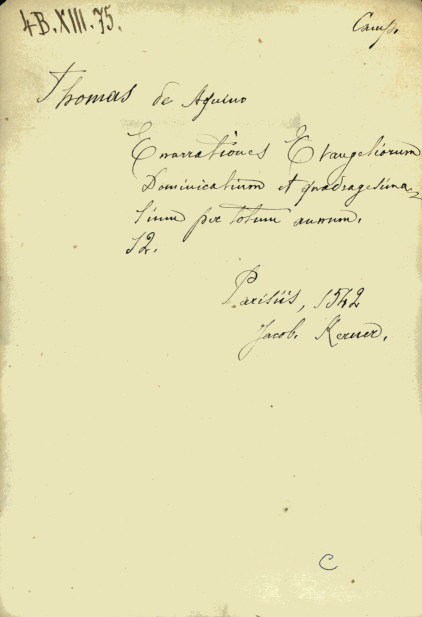 4B.XIII.75.
Camp.
Thomas de Aquino
Enarrationes Evangeliorum
Dominicalium et quadragesima-
lium per totum annum.
12.
Parisiis, 1542
Jacob. Kerver.
C